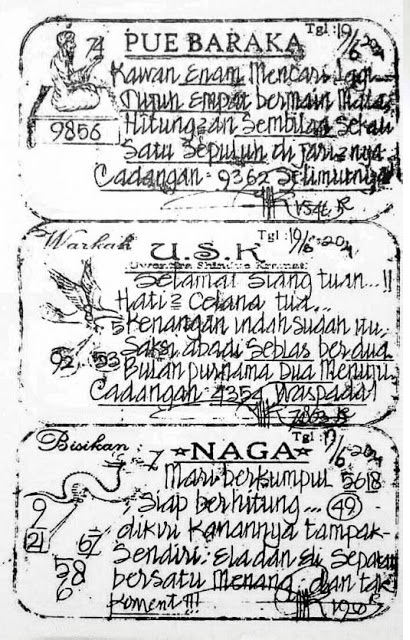 Tgl: 19/6-2024
PUE BARAKA
74
Kawan Enam Mencari
Tujuh Empat bermain Mata
9856
Hitung2an Sembilan Sekali
Satu Sepuluh di jari2nya
Cadangan = 9362 Selimutnya
Warkah
Tgl: 19/6-2024
U.S.K
Selamat Siang tuan...!!
Hati2 Celana tua...
5
Kenangan indah sudah itu
92 53
Saksi abadi Seblas berdua
Bulan purnama Dua Menuju
Cadangan = 4354 Waspada!
Bisikan
Tgl: 19/6-2024
NAGA
7
Mari berkumpul 5618
Siap berhitung... 49
9
dikiri Kanannya tampak
21 67
Sendiri. Ela dan Eli Sepatan
58
bersatu Menang dan tak
6
Koment!!!